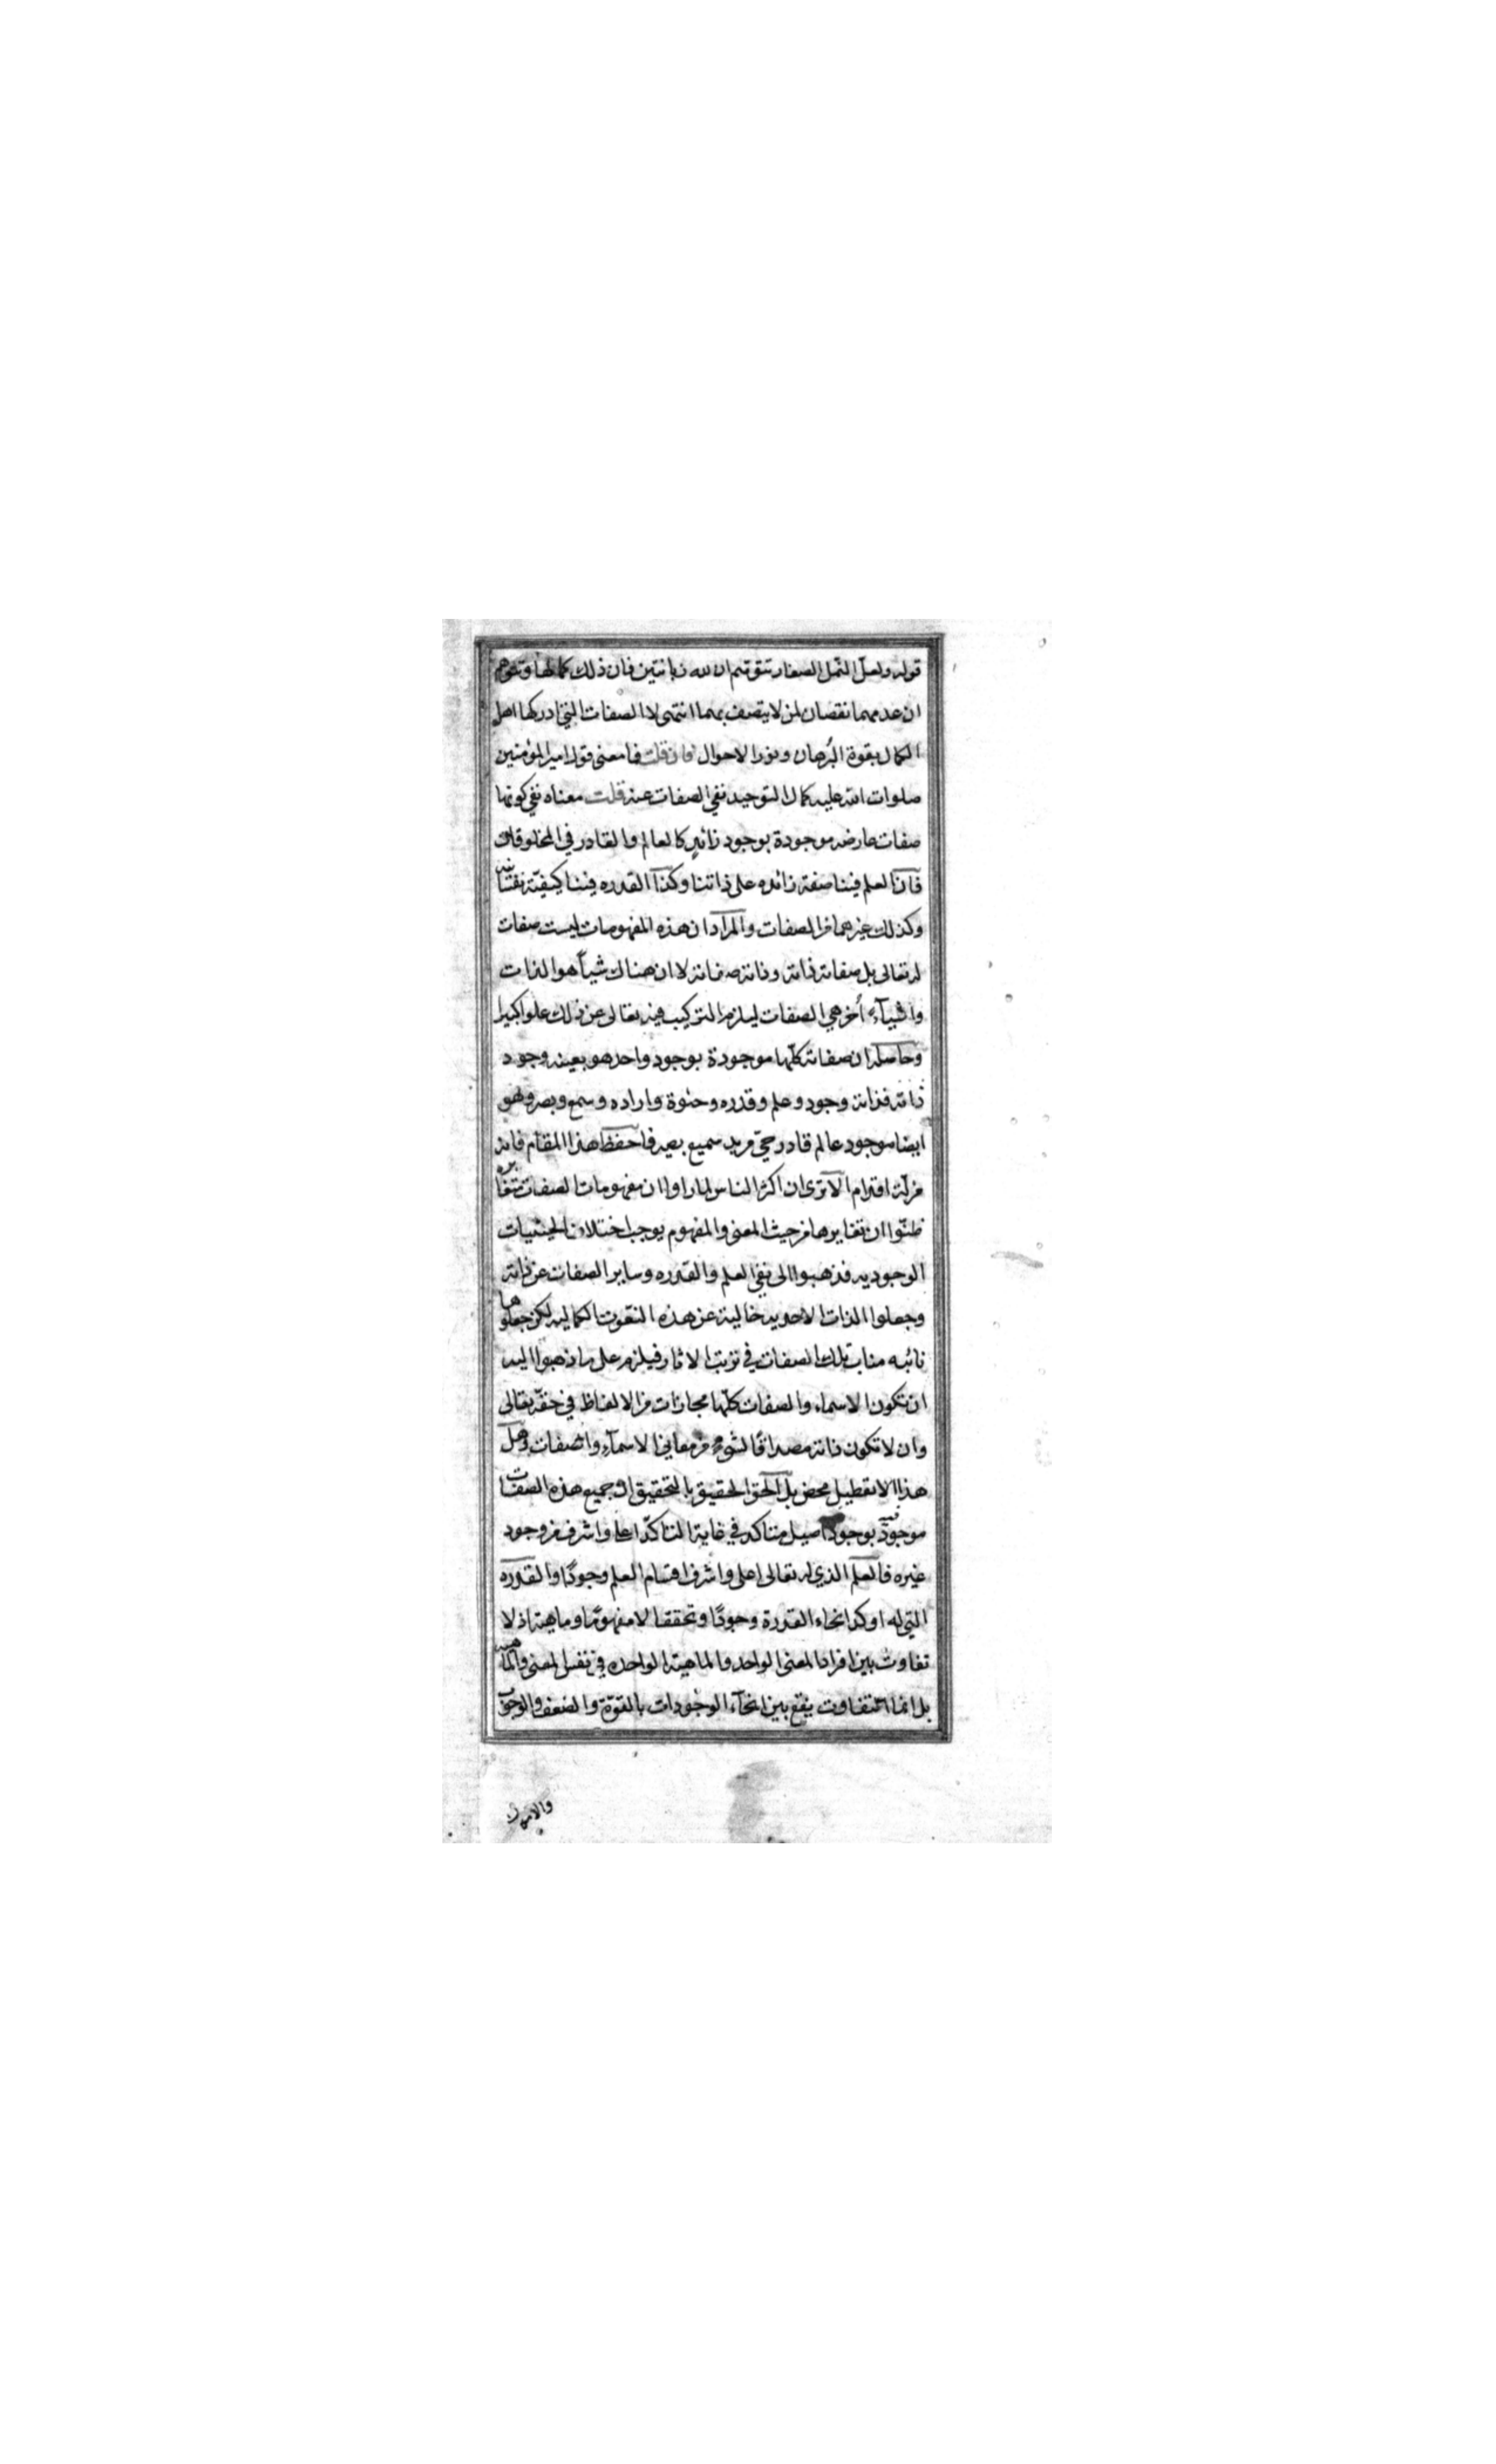 قوله ولعل النمل الصغار تتوهم ان لله زبانتين فان ذلك كمالها وتتوهم
ان عدمهما نقصان لمن لا يتصف بهما انتهى لا الصفات التي ادركها اهل
الكمال بقوة البرهان ونور الاحوال فان قلت فما معنى قول امير المؤمنين
صلوات الله عليه كمال التوحيد نفي الصفات عنه قلت معناه نفي كونها
صفات عارضه موجودة بوجود زائد كالعالم والقادر في المخلوقات
فان العلم فينا صفة زائده على ذاتنا وكذا القدره فينا كيفيّة نفسانية
وكذلك غيرهما من الصفات والمراد ان هذه المفهومات ليست صفات
له تعالى بل صفاته ذاته وذاته صفاته لا ان هناك شيأ هو الذات
واشيآء أخر هي الصفات ليلزم التركيب فيه تعالى عن ذلك علوا كبيرا
وحاصله ان صفاته كلّها موجودة بوجود واحد هو بعينه وجود
ذاته فذاته وجود وعلم وقدره وحيوة واراده وسمع وبصر وهو
ايضا موجود عالم قادر حيّ مريد سميع بصير فاحفظ هذا المقام فانه
مزلّة اقدام الا ترى ان اكثر الناس لما راوا ان مفهومات الصفات متغايره
ظنّوا ان تغايرها من حيث المعنى والمفهوم يوجب اختلاف الحيثيات
الوجوديه فذهبوا الى نفي العلم والقدره وساير الصفات عن ذاته
وجعلوا الذات الاحديه خالية عن هذه النعوت الكماليه لكن جعلوها
نائبه مناب تلك الصفات في ترتب الاثار فيلزم على ما ذهبوا اليه
ان تكون الاسماء والصفات كلّها مجازات من الالفاظ في حقّه تعالى
وان لا تكون ذاته مصداقًا لشئ من معاني الاسمآء والصفات وهل
هذا الا تعطيل محض بل الحق الحقيق بالتحقيق ان جميع هذه الصفات
موجودة فيه بوجود اصيل متاكد في غاية التاكّد اعلى واشرف من وجود
غيره فالعلم الذي له تعالى اعلى واشرف اقسام العلم وجودًا والقدره
التي له اوكد انحاء القدرة وجودًا وتحققا لا مفهومًا وماهية اذ لا
تفاوت بين افراد المعنى الواحد والماهية الواحده في نفس المعنى والماهيه
بل انما التفاوت يقع بين انحآء الوجودات بالقوّة والضعف والوجوب